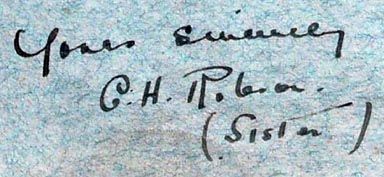 Yours sincerely
C. H. Robson.
(Sister)